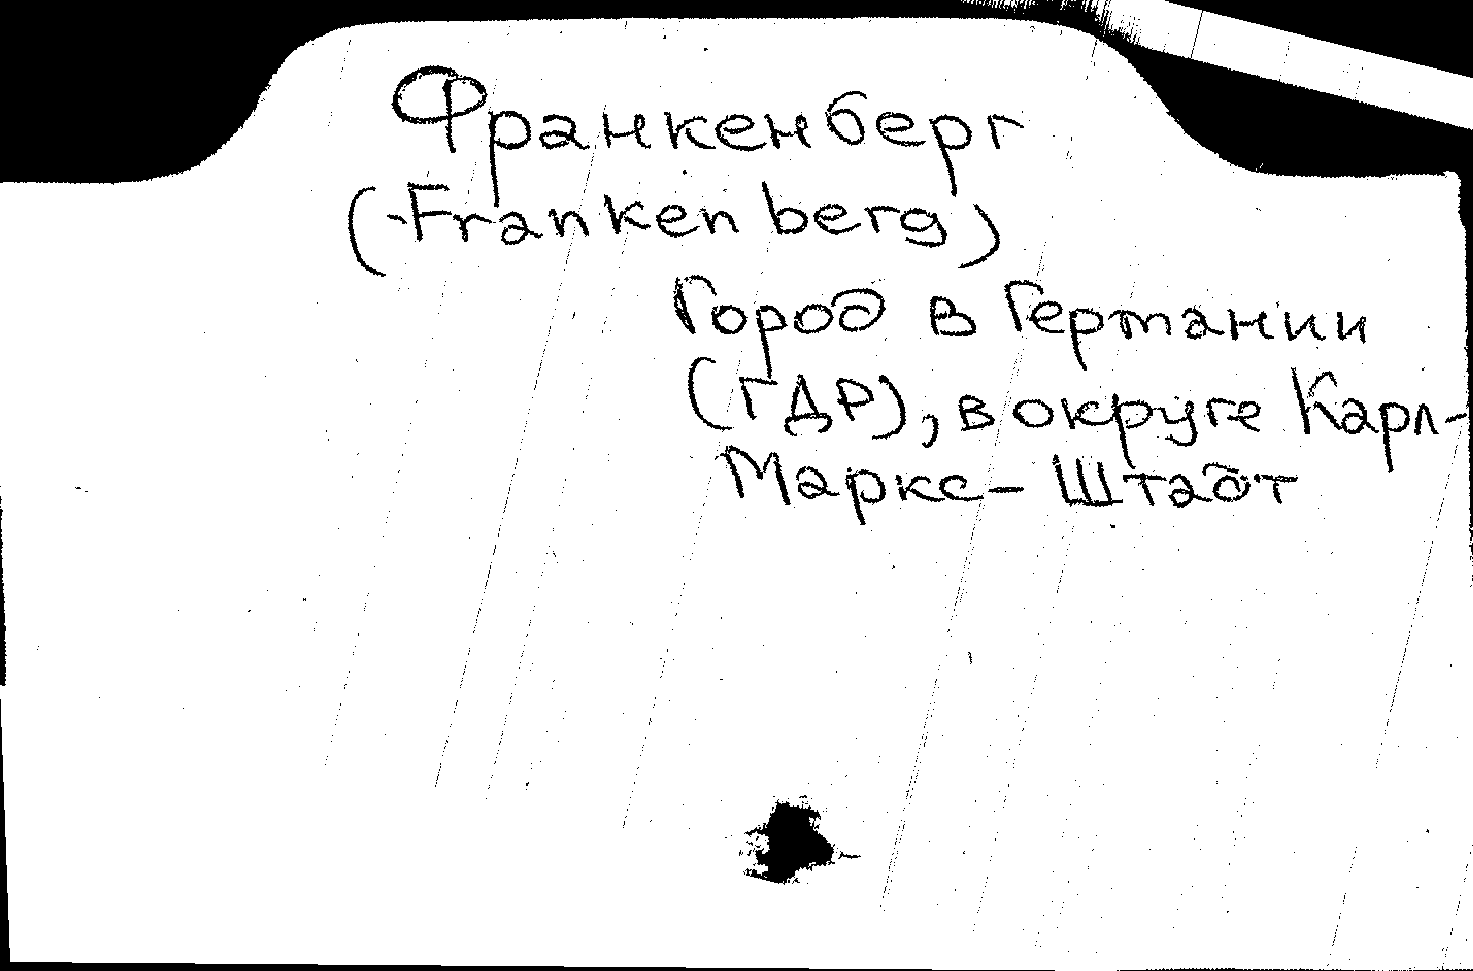 Франкенберг
(Frankenberg)
Город в Германии
(ГДР), в округе Карл-
Маркс-Штадт